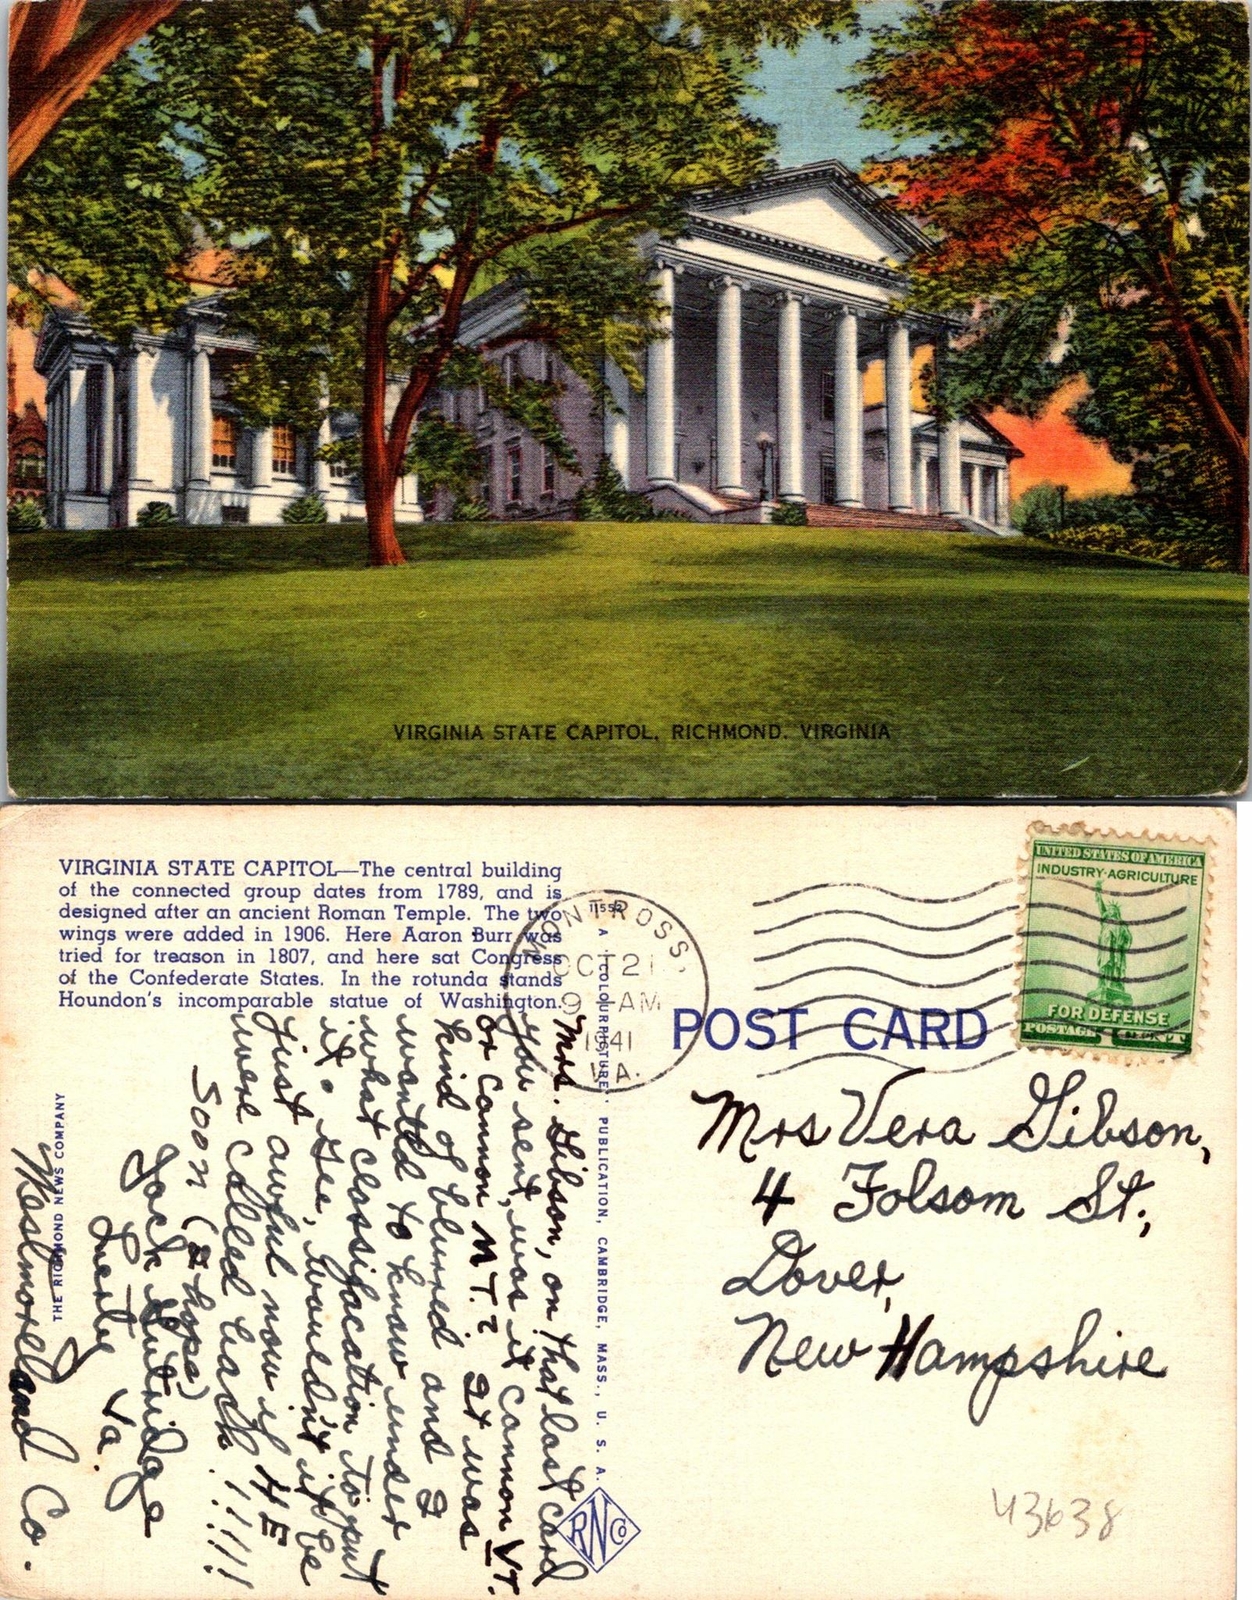 VIRGINIA STATE CAPITOL, RICHMOND, VIRGINIA
VIRGINIA STATE CAPITOL—The central building
of the connected group dates from 1789, and is
designed after an ancient Roman Temple. The two
wings were added in 1906. Here Aaron Burr was
tried for treason in 1807, and here sat Congress
of the Confederate States. In the rotunda stands
Houndon's incomparable statue of Washington.
MONTROSS,
OCT 21
9 AM
1941
VA.
UNITED STATES OF AMERICA
INDUSTRY·AGRICULTURE
FOR DEFENSE
POSTAGE 1
POST CARD
11552
A "COLOURPICTURE" PUBLICATION, CAMBRIDGE, MASS., U. S. A.
THE RICHMOND NEWS COMPANY
RNCo
Mrs. Gibson, on that last card
you sent, was it Cannon VT.
or Cannon MT.? It was
kind of blurred and I
wanted to know under
what classifacation to put
it. Gee, wouldn't it be
just awful now if HE
were called back!!!!!
soon (I hope)
Jack Gutridge
Lerty Va.
Westmoreland Co.
Mrs Vera Gibson,
4 Folsom St.,
Dover,
New Hampshire
43638